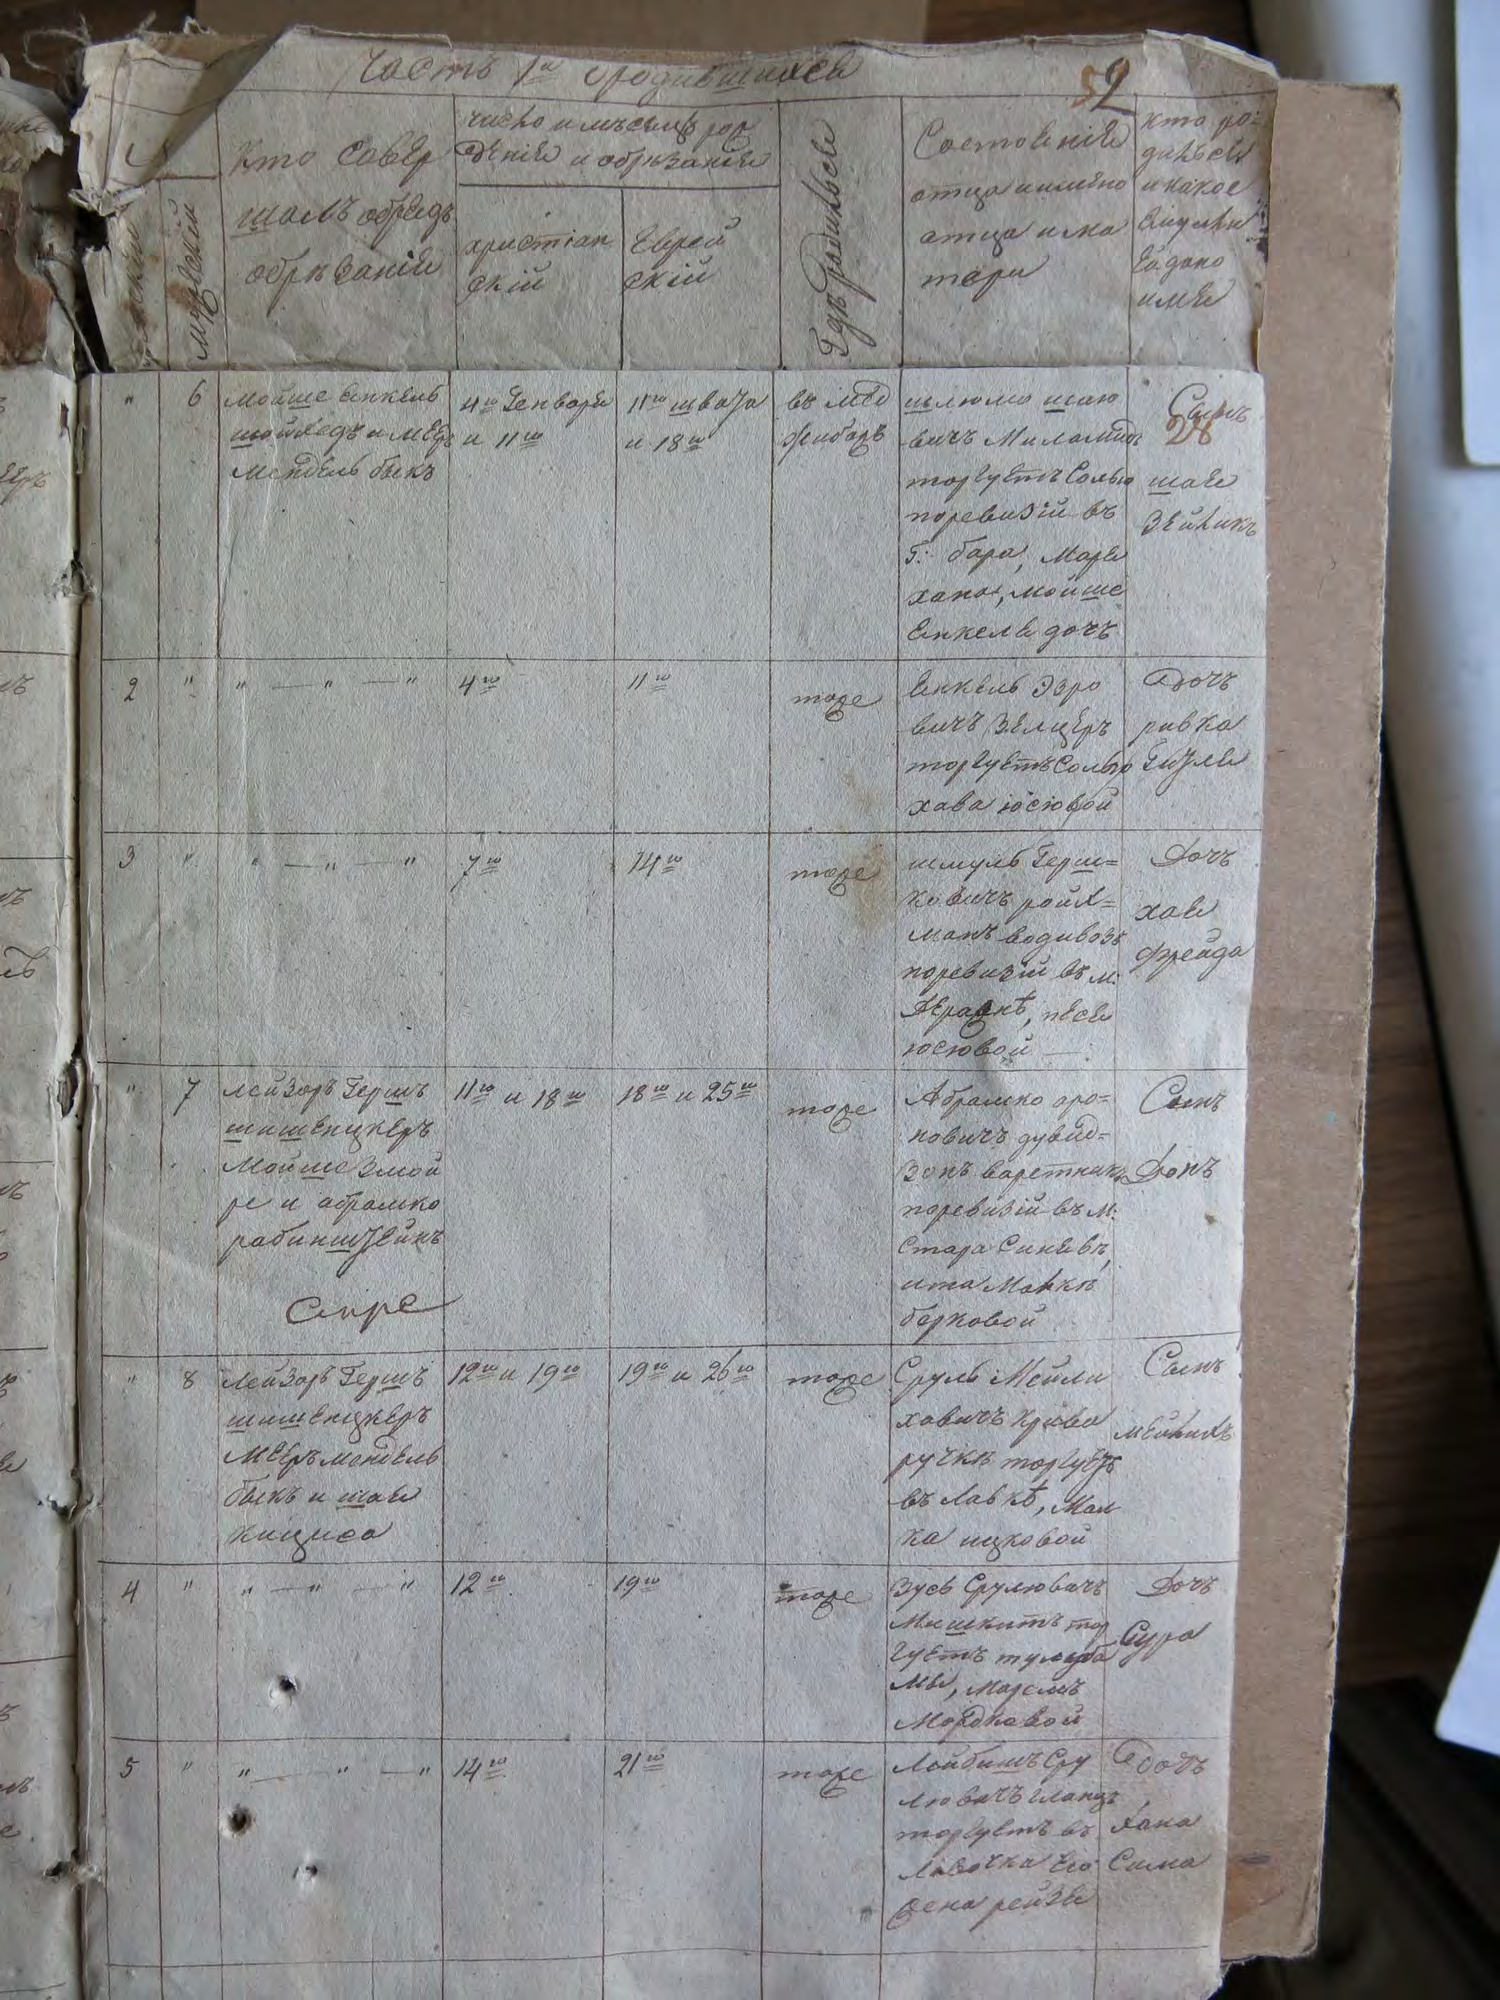 Часть 1я о родившихся
52
№
женский
мужеский
Кто совер
шалъ обрядъ
обрѣзания
число и мѣсяцъ рож
дения и обрѣзания
христиан
ский
Еврей
ский
Гдѣ родился
Состояние
отца и имяно
отца и ма
тери
кто ро=
дился
и какое
ему или
ей дано
имя
" 6
мойше янкель
шойхедъ и меер
мендель быкъ
4го Генваря
и 11го
11го швата
и 18го
въ ме
жибожъ
шлюмо шаю
вичъ Миламидъ
торгуетъ солью
поревизій въ
Г: бара, Марея
хана, мойше
янкеля дочъ
Сынъ
28
шая
Зейликъ
2 " " — " — "
4го
11го
тоже
Янкель Эзро
вичъ Зелцеръ
торгуетъ солью
хава іосіовой
Дочъ
ривка
Гитля
3 " " — " — "
7го
14го
тоже
шмуль Герш=
ковичъ ройх=
манъ водивозъ
поревизій въ м:
Деражнѣ, песя
юсювой —
Дочъ
хая
фрейда
" 7
лейзоръ Гершъ
шишеницкеръ
Мойше Змой
ре и абрамко
рабинштейнъ
11го и 18го
18го и 25го
тоже
Абрамко аро=
новичъ дувид=
зонъ варетникъ
поревизій въ м:
Стара Синявѣ,
ита Малкѣ
берковой
Сынъ
Донъ
" 8
Лейзоръ Гершъ
шишеницкеръ
Мееръ мендель
быкъ и шая
кициса
12го и 19го
19го и 26го
тоже
Сруль Мейли
ховичъ криво
ручкѣ торгуетъ
въ лавкѣ, Мал
ка ицковой
Сынъ
мейлихъ
4 " " — " — "
12го
19го
тоже
Зусь Срулювичъ
Мишкитъ тор
гуетъ тулуба
мы, Маремъ
Мордковой
Дочъ
Сура
5 " " — " — "
14го
21го
тоже
Лейбишъ Сру
лювичъ Гланцъ
торгуетъ въ
лавочка его
жена рейзя
Дочъ
Хана
Сима